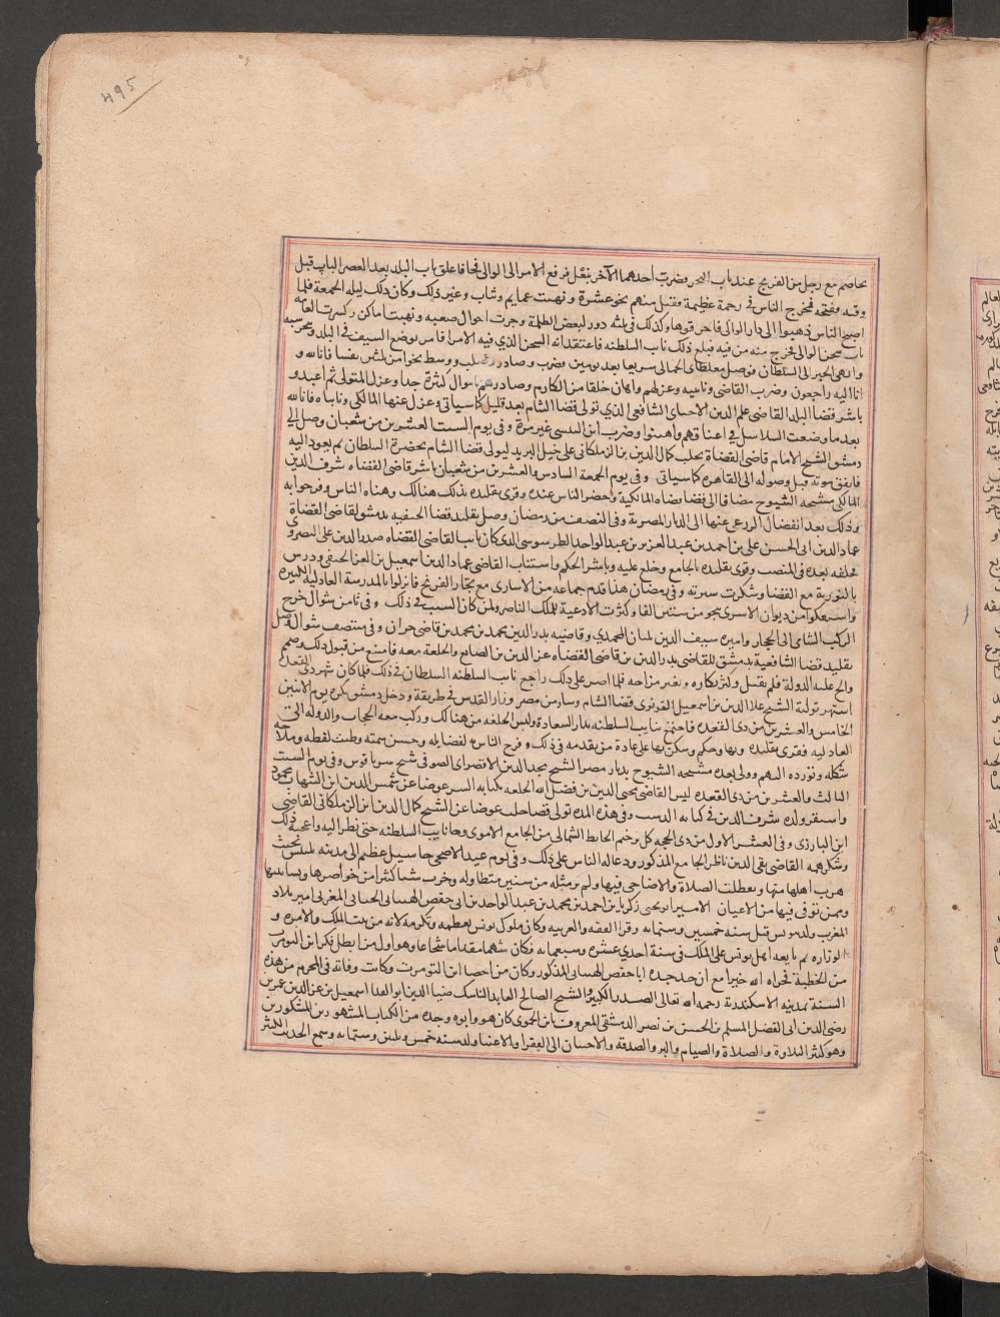 495
تخاصم مع رجل من الفرنج عند باب البحر فضرب احدهما الآخر بنعل فرفع الامر الى الوالي فجا فاغلق باب البلد بعد العصر الباب قبل
وقته وفتحه فخرج الناس في زحمة عظيمة وقتل منهم نحو عشرة ونهبت عمايم وثياب وغير ذلك وكان ذلك ليلة الجمعة فلما
اصبح الناس ذهبوا الى دار الوالي فاحرقوها وكذلك في ثلثه دور لبعض الظلمة وجرت احوال صعبه ونهبت اماكن وكسرت العامه
باب سجن الوالي فخرج منه من فيه فبلغ ذلك نايب السلطنه فاعتقد انه السجن الذي فيه الامرا فامر بوضع السيف في البلد وتخريبه
وانهى الخبر الى السلطان فوصل مغلطاي الجمالي سريعا بعد يومين وضرب وصادر وصلب ووسط نحوا من ثلثين نفسا فانا لله و
انا اليه راجعون وضرب القاضي ونايبه وعزلهم واهان خلقا من الكارم وصادرهم باموال كثيرة جدا وعزل المتولي ثم اعيد و
باشر قضا البلد القاضي علم الدين الاخناي الشافعي الذي تولى قضا الشام بعد قليل كما سياتي وعزل عنها المالكي ونايباه فانا لله
بعد ما وضعت السلاسل في اعناقهم واهينوا وضرب ابن التنسي غير مرة وفي يوم السبت العشرين من شعبان وصل الى
دمشق الشيخ الامام قاضي القضاة بحلب كمال الدين بن الزملكاني على خيل البريد ليولى قضا الشام بحضرة السلطان ثم يعود اليه
فاتفق موته قبل وصوله الى القاهرة كما سياتي وفي يوم الجمعة السادس والعشرين من شعبان باشر قاضي القضاه شرف الدين
المالكي مشيخه الشيوخ مضافا الى قضا قضاه المالكية وحضر الناس عنده وقري تقليده بذلك هنالك وهناه الناس وفرحوا به
وذلك بعد انفصال الزرعي عنها الى الديار المصرية وفي النصف من رمضان وصل تقليد قضا الحنفيه بدمشق لقاضي القضاة
عماد الدين ابي الحسن علي بن احمد بن عبد العزيز بن عبد الواحد الطرسوسي الذي كان نايب القاضي القضاه صدر الدين علي البصروي
فخلفه بعده في المنصب وقري تقليده بالجامع وخلع عليه وباشر الحكم واستناب القاضي عماد الدين اسمعيل بن العز الحنفي ودرس
بالنورية مع القضا وشكرت سيرته وفي رمضان هذا قدم جماعه من الاسارى مع تجار الفرنج فانزلوا بالمدرسة العادلية الكبيرة
واستفكوا من ديوان الاسرى بنحو من ستين الفا وكثرت الادعية للملك الناصر ولمن كان السبب في ذلك وفي ثامن شوال خرج
الركب الشامي الى الحجاز واميره سيف الدين بلبان المحمدي وقاضيه بدر الدين محمد بن محمد بن قاضي حران وفي منتصف شوال وصل
تقليد قضا الشافعية بدمشق للقاضي بدر الدين بن قاضي القضاه عز الدين بن الصايغ والخلعة معه فامتنع من قبول ذلك وصمم
والح عليه الدولة فلم يقبل وكثر بكاوه وتغير مزاحه فلما اصر على ذلك راجع نايب السلطنه السلطان في ذلك فلما كان شهر ذي القعده
اشتهر تولية الشيخ علا الدين بن اسمعيل القونوي قضا الشام وسار من مصر وزار القدس في طريقه ودخل دمشق بكره يوم الاثنين
الخامس والعشرين من ذي القعده فاجتمع بنايب السلطنه بدار السعادة ولبس الخلعه من هنالك وركب معه الحجاب والدوله الى
العادليه فقري تقليده وبها وحكم وسكن بها على عادة من تقدمه في ذلك وفرح الناس به لفضايله وحسن سمته وطيب لفظه وملاحه
شكله وتودده اليهم وولى بعده مشيخه الشيوخ بديار مصر الشيخ مجد الدين الاقصراي الصوفي شيخ سرياقوس وفي يوم السبت
الثالث والعشرين من ذي القعده لبس القاضي محيي الدين بن فضل الله الخلعه بكتابه السر عوضا عن شمس الدين ابن الشهاب محمود
واستقر ولده شرف الدين في كتابه الدست وفي هذه المده تولى قضا حلب عوضا عن الشيخ كمال الدين ابن الزملكاني القاضي
ابن البارزي وفي العشر الاول من ذي الحجه كمل ترخيم الحايط الشمالي من الجامع الاموي وجا نايب السلطنه حتى نظر اليه واعجبه ذلك
وشكر همه القاضي تقي الدين ناظر الجامع المذكور ودعا له الناس على ذلك وفي يوم عيد الاضحى جا سيل عظيم الى مدينه بلبيس بحيث
هرب اهلها منها وتعطلت الصلاة والاضاحي فيها ولم ير مثله من سنين متطاوله وخرب شيئا كثيرا من حواضرها وبساتينها
وممن توفى فيها من الاعيان الامير ابو يحيى زكريا بن احمد بن محمد بن عبد الواحد بن ابي حفص الهنتاني اللحياني المغربي امير بلاد
المغرب ولد بتونس قبل سنه خمسين وستمايه وقرا الفقه والعربيه وكان ملوك تونس تعظمه وتكرمه لانه من بيت الملك والامره و
الوزاره ثم بايعه اهل تونس على الملك في سنة احدي عشره وسبعمايه فكان شهما مقداما شجاعا وهو اول من ابطل ذكر ابن التومرت
من الخطبة فجزاه الله خيرا مع ان جد جده ابا حفص الهنتاني المذكور وكان من اخصا ابن التومرت وكانت وفاته في المحرم من هذه
السنة بمدينه الاسكندرية رحمه الله تعالى الصدر الكبير والشيخ الصالح العابد الناسك ضيا الدين ابو الفدا اسمعيل بن عز الدين عمر بن
رضي الدين ابي الفضل المسلم بن الحسن بن نصر الدمشقي المعروف بابن الحموي كان هو وابوه وجده من الكتاب المشهورين المشكورين
وهو كثير التلاوة والصلاة والصيام والبر والصدقه والاحسان الى الفقرا والاغنيا ولد سنه خمس وثلثين وستمايه وسمع الحديث الكثير